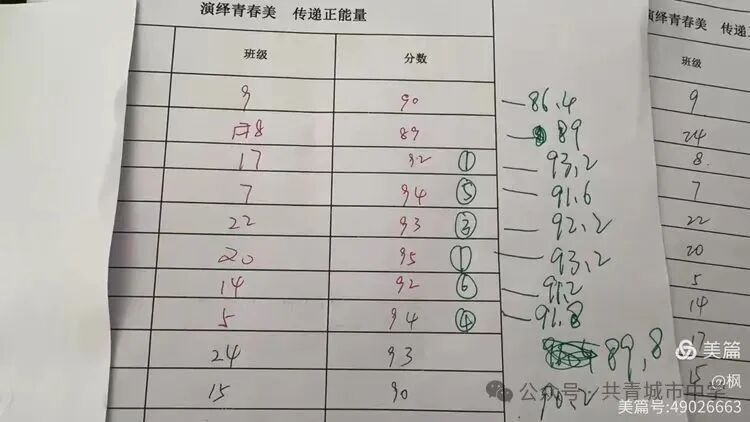 演绎青春美 传递正能量
班级 分数
9 90 — 86.4
8 89 — 89
17 92 ① — 93.2
7 94 ⑤ — 91.6
22 93 ③ — 92.2
20 95 ① — 93.2
14 92 ⑥ — 91.2
5 94 ④ — 91.8
24 93 89.8
15 90 90.2
演绎青春美 传递正
班级
9
24
8
7
22
20
5
14
17
15
美篇
@枫
公众号·共青城市中学
美篇号:49026663